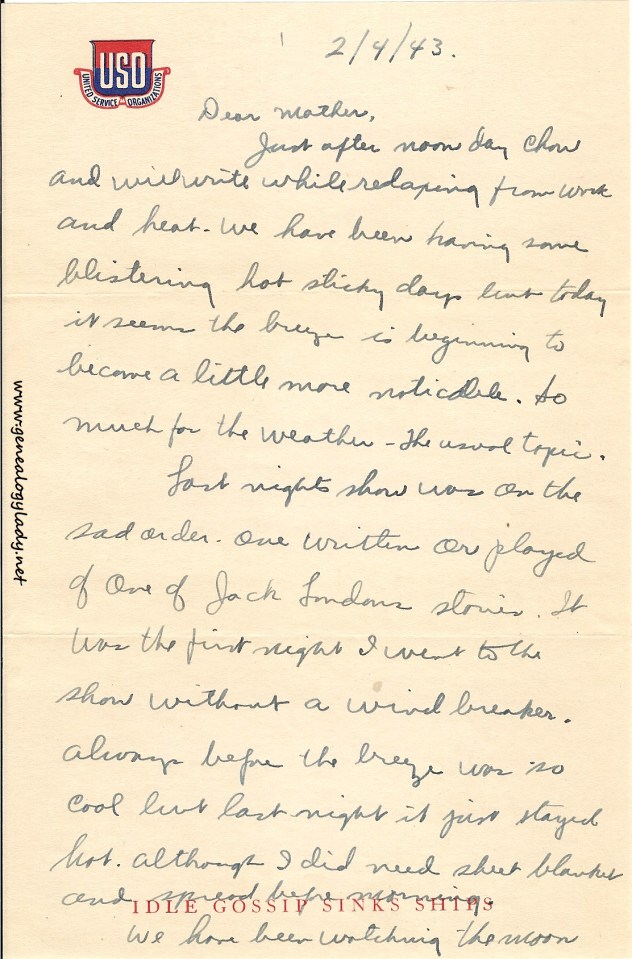 USO
UNITED SERVICE ORGANIZATIONS
2/4/43.
Dear Mother,
Just after noon day chow
and will write while relaxing from work
and heat. We have been having some
blistering hot sticky days but today
it seems the breeze is beginning to
become a little more noticable. So
much for the weather - the usual topic.
Last nights show was on the
sad order. One written or played
of one of Jack Londons stories. It
was the first night I went to the
show without a wind breaker.
Always before the breeze was so
cool but last night it just stayed
hot. Although I did need sheet blanket
and spread before morning.
IDLE GOSSIP SINKS SHIPS
We have been watching the moon
www.genealogylady.net